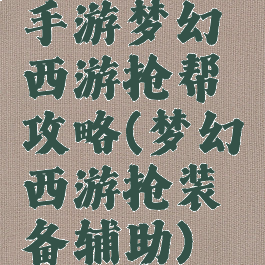 手游梦幻
西游抢帮
攻略(梦幻
西游抢装
备辅助)